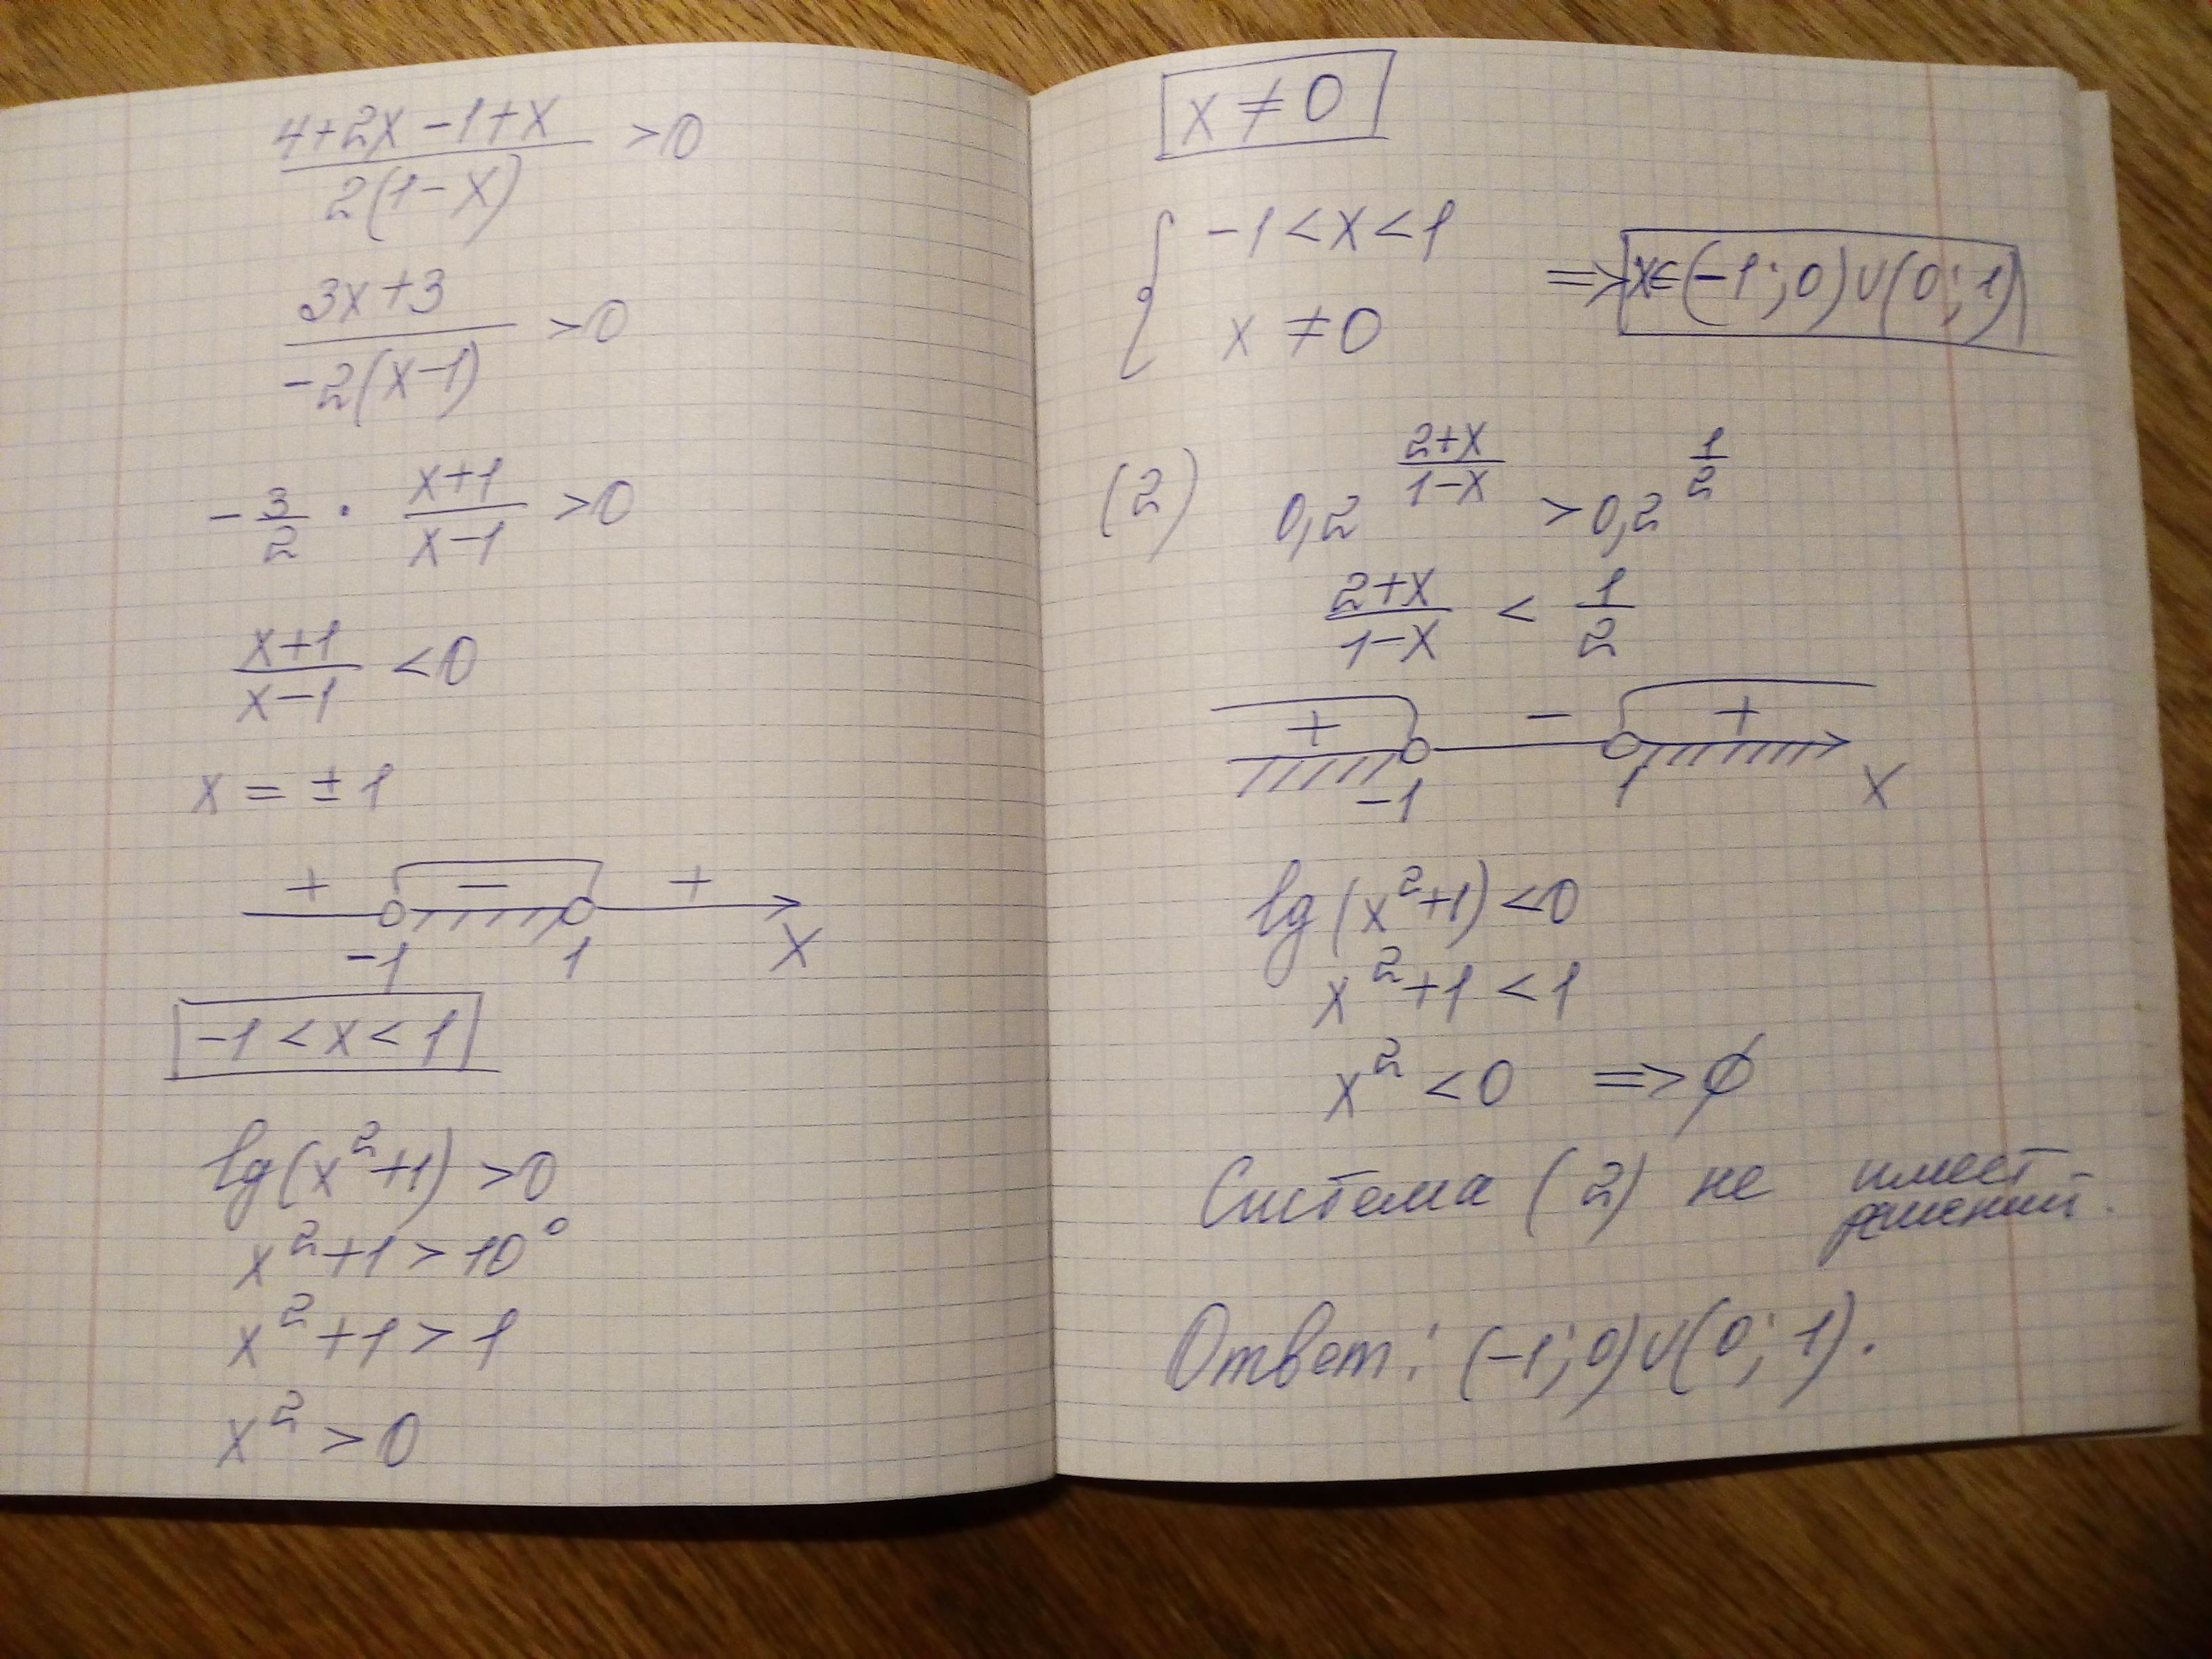 4+2x-1+x / 2(1-x) >0
3x+3 / -2(x-1) >0
-3/2 · x+1 / x-1 >0
x+1 / x-1 <0
x = ±1
+ - +
-1 1 x
-1 < x < 1
lg(x²+1) >0
x²+1 > 10⁰
x²+1 > 1
x² > 0
x ≠ 0
{ -1 < x < 1
x ≠ 0
=> x∈(-1;0)∪(0;1)
(2) 0,2^(2+x / 1-x) > 0,2^(1/2)
2+x / 1-x < 1/2
+ - +
-1 1 x
lg(x²+1) <0
x²+1 < 1
x² < 0 => ∅
Система (2) не имеет
решений.
Ответ: (-1;0)∪(0;1).